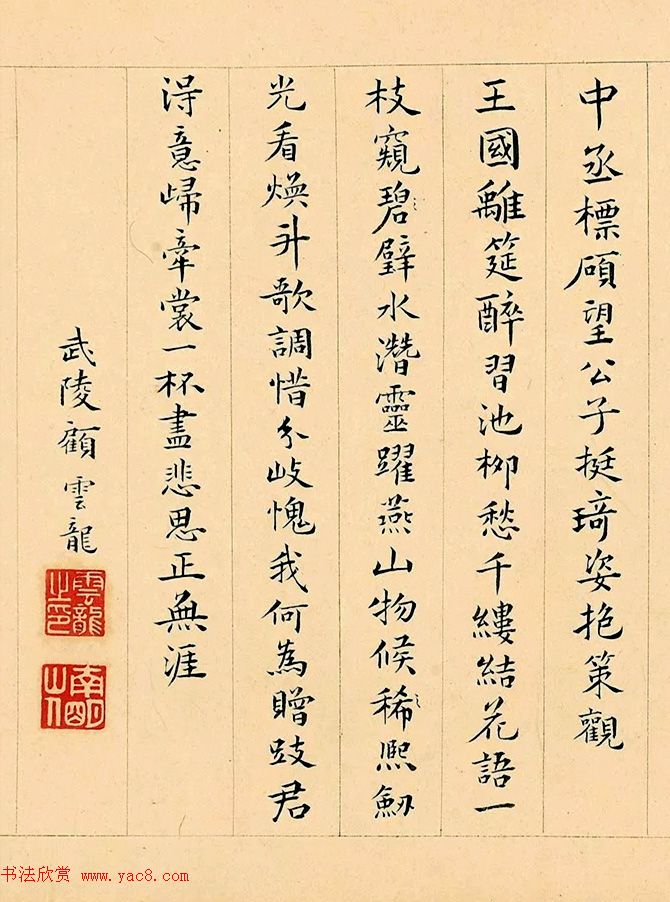 中丞標碩望公子挺琦姿抱策觀
王國離筵醉習池柳愁千縷結花語一
枝窺碧璧水潛靈躍燕山物候稀熙劒
光看煥斗歌調惜分岐愧我何為贈跂君
得意歸牽裳一杯盡悲思正無涯
武陵顧雲龍
雲龍之印
书法欣赏 www.yac8.com